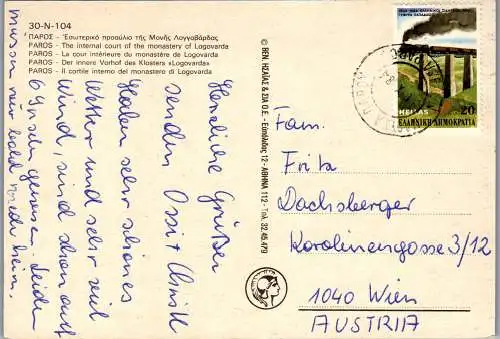 30-N-104
ΠΑΡΟΣ - Ἐσωτερικό προαύλιο τῆς Μονῆς Λογγοβάρδας
PAROS - The internal court of the monastery of Logovarda
PAROS - La cour intérieure du monastère de Logovarda
PAROS - Der innere Vorhof des Klosters «Logovarda»
PAROS - Il cortile interno del monastero di Logovarda
Herzliche Grüße
senden Ossi + Christl
Haben sehr schönes
Wetter und sehr viel
Wind, sind schon auf
6 Inseln gewesen. Leider
müssen wir bald wieder heim.
© ΒΕΝ. ΗΣΑΪΑΣ & ΣΙΑ Ο.Ε. - Εὐπόλιδος 12 - ΑΘΗΝΑ 112 - Τηλ. 32.45.479
HELLAS 20
ΕΛΛΗΝΙΚΗ ΔΗΜΟΚΡΑΤΙΑ
Fam.
Fritz
Dachsberger
Karolinengasse 3/12
1040 Wien
AUSTRIA